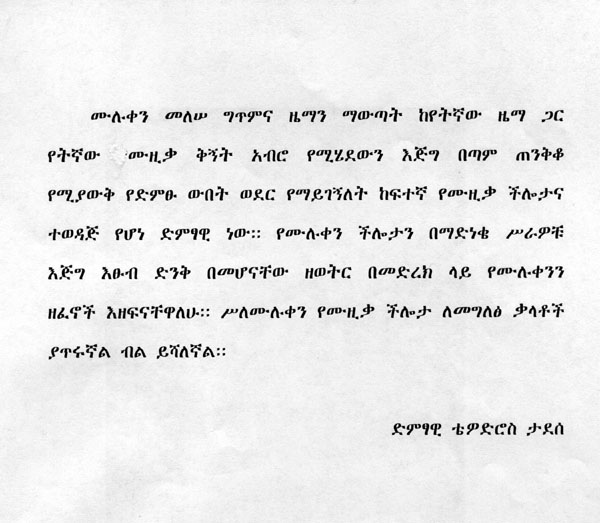 ሙሉቀን መለሠ ግጥምና ዜማን ማውጣት ከየትኛው ዜማ ጋር
የትኛው ሙዚቃ ቅኝት አብሮ የሚሄደውን እጅግ በጣም ጠንቅቆ
የሚያውቅ የድምፁ ውበት ወደር የማይገኝለት ከፍተኛ የሙዚቃ ችሎታና
ተወዳጅ የሆነ ድምፃዊ ነው። የሙሉቀን ችሎታን በማድነቄ ሥራዎቹ
እጅግ እፁብ ድንቅ በመሆናቸው ዘወትር በመድረክ ላይ የሙሉቀንን
ዘፈኖች እዘፍናቸዋለሁ። ሥለሙሉቀን የሙዚቃ ችሎታ ለመግለፅ ቃላቶች
ያጥሩኛል ብል ይሻለኛል።
ድምፃዊ ቴዎድሮስ ታደሰ